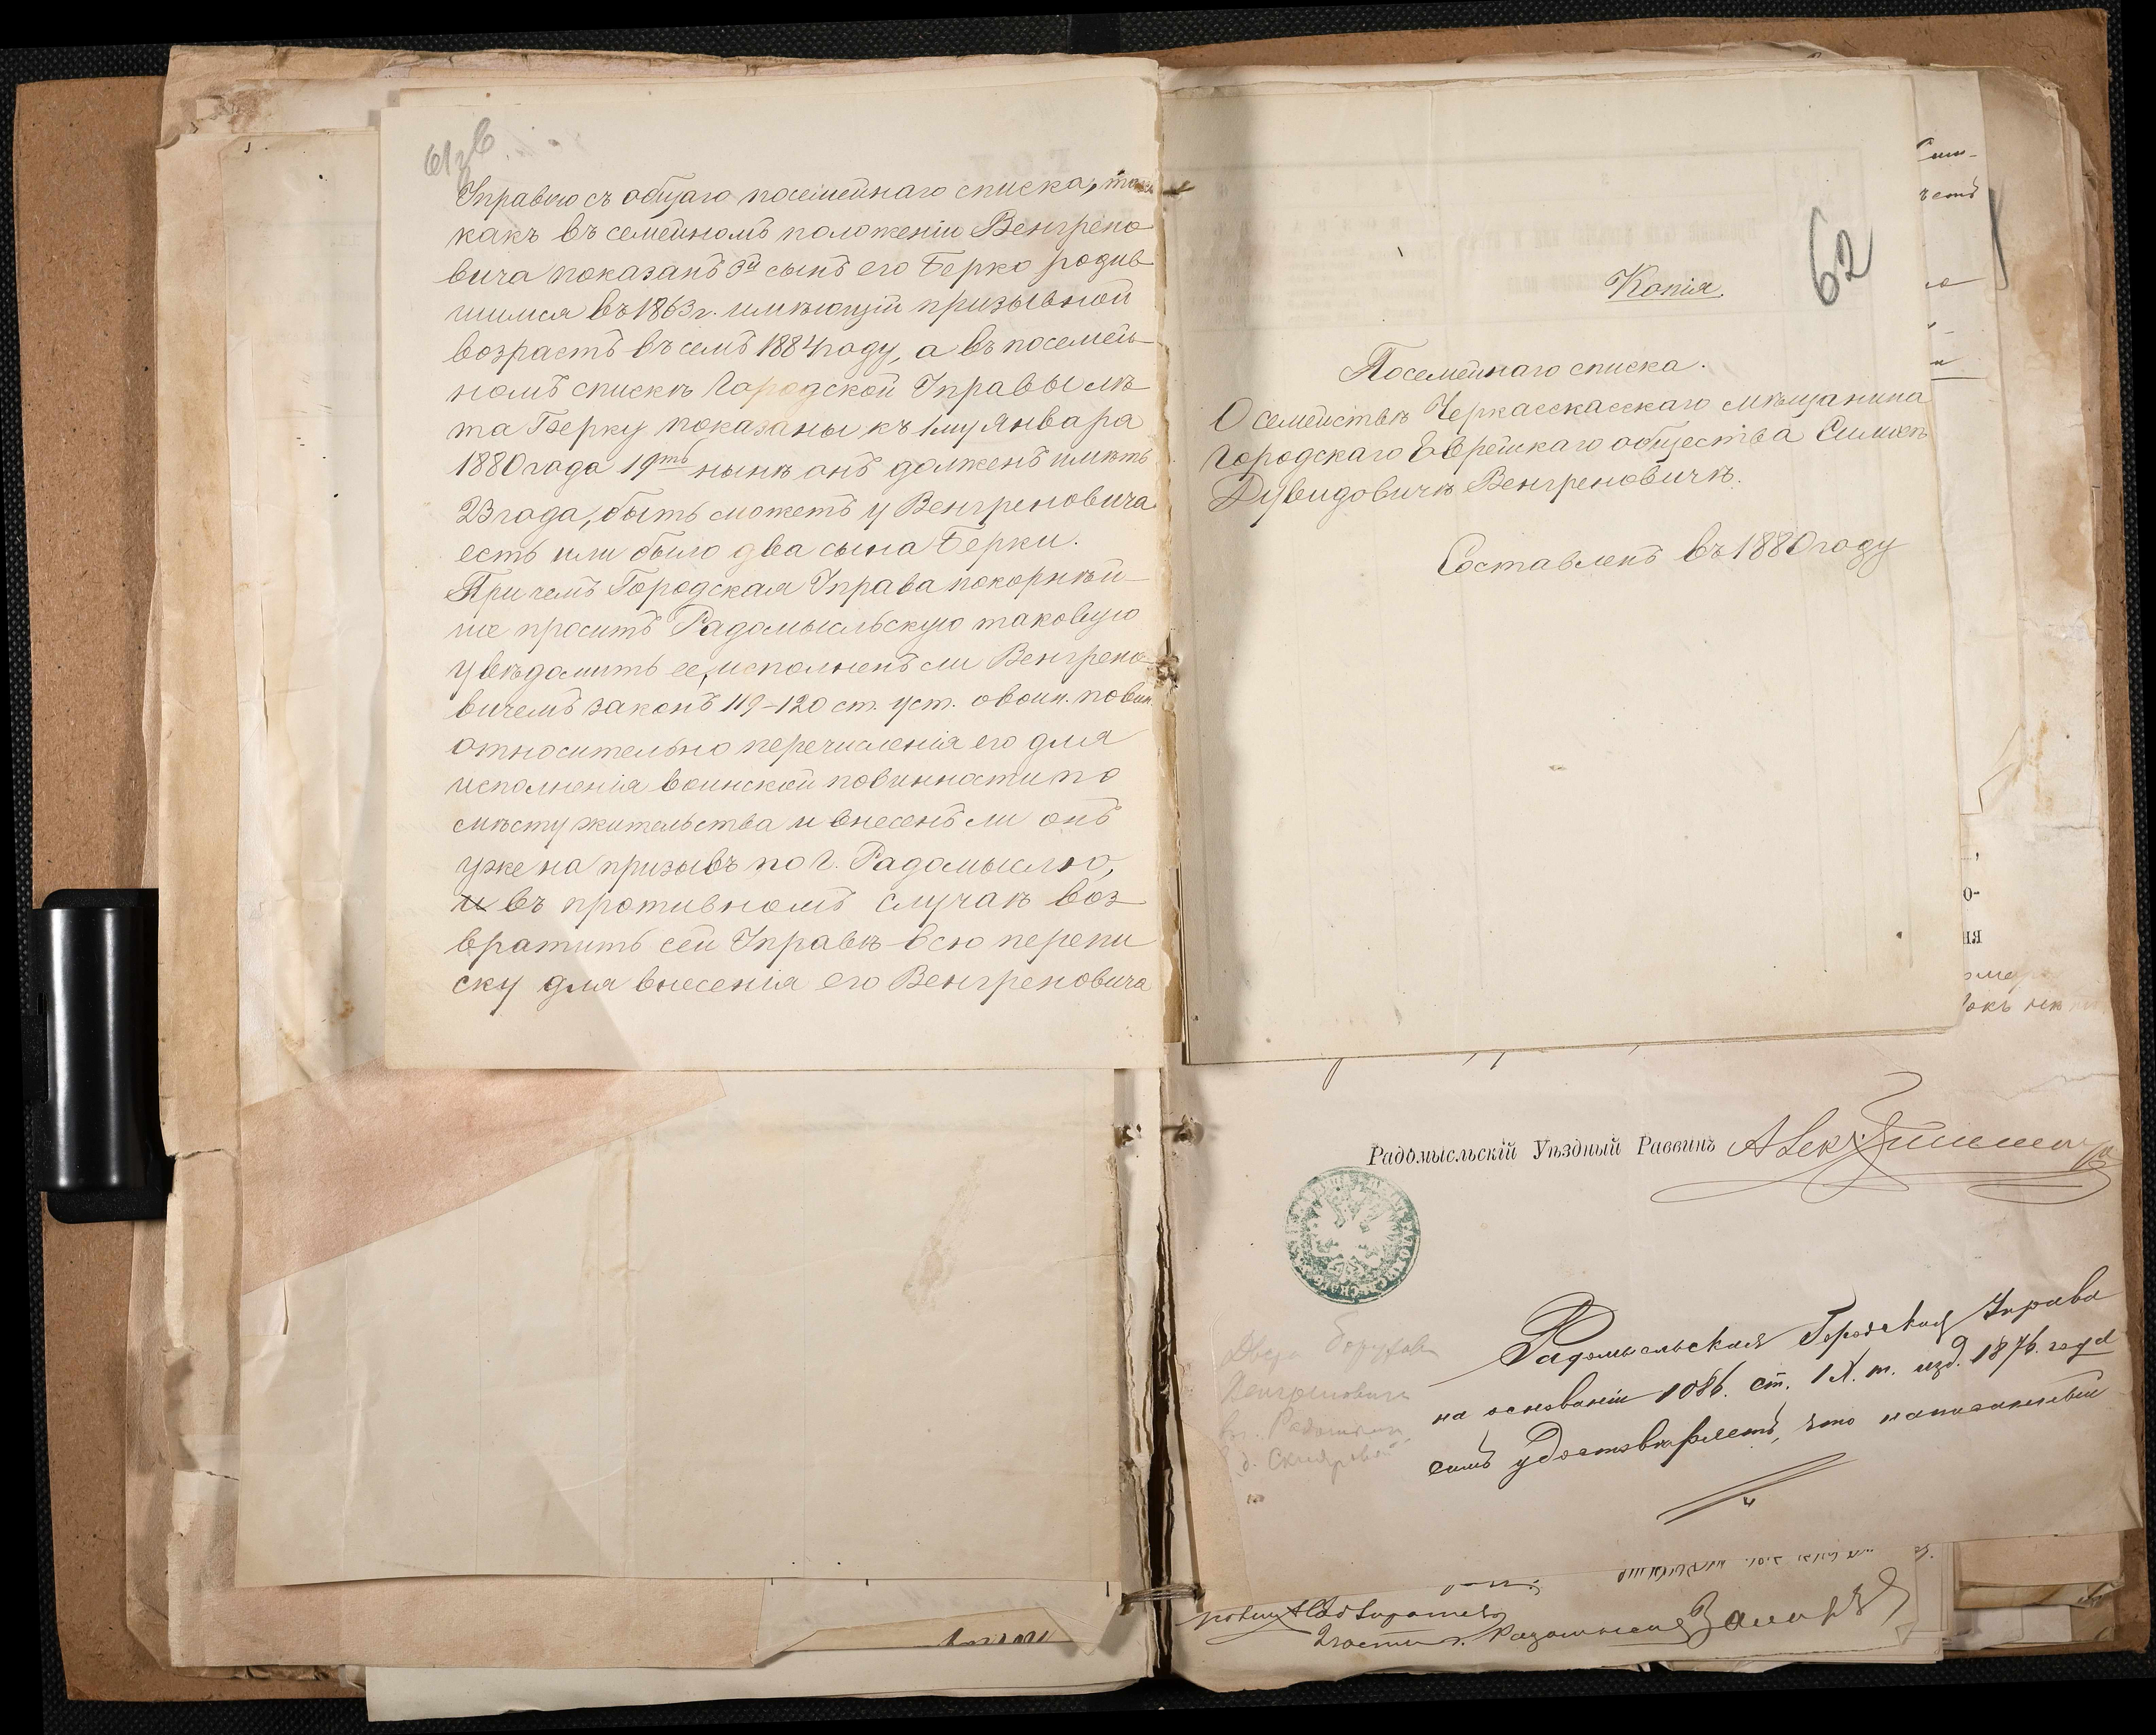 Управою съ общаго посемейнаго списка, такъ
какъ въ семейномъ положеніи Венгрено
вича показанъ 3й сынъ его Берко родив
шимся въ 1863 г. имѣющій призывной
возрастъ въ семъ 1884 году, а въ посемей-
номъ спискѣ Городской Управы лѣ
та Берку показаны къ 1му Января
1880 года 19ть нынѣ онъ долженъ имѣть
23 года, быть сможетъ у Венгреновича
есть или было два сына Берки.
При чемъ Городская Управа покорнѣй-
ше проситъ Радомысльскую таковую
увѣдомить ее, исполненъ ли Венгрено-
вичемъ законъ 119-120 ст. уст. о воин. повин.
относительно перечисленія его для
исполненія воинской повинности по
мѣсту жительства и внесенъ ли онъ
уже на призывъ по г. Радомыслю,
и въ противномъ случаѣ воз
вратить сей Управѣ всю перепи
ску для внесенія его Венгреновича
62
Копія
Посемейнаго списка.
О семействѣ Черкасскасскаго мѣщанина
Городскаго Еврейскаго общества Симхѣ
Дувидовичѣ Венгреновичѣ.
Составленъ въ 1880 году
Радомысльскій Уѣздный Раввинъ
Радомысльская Городская Управа
на основаніи 1086. ст. IX. т. изд. 1876. года
симъ удостовѣряетъ, что написанный